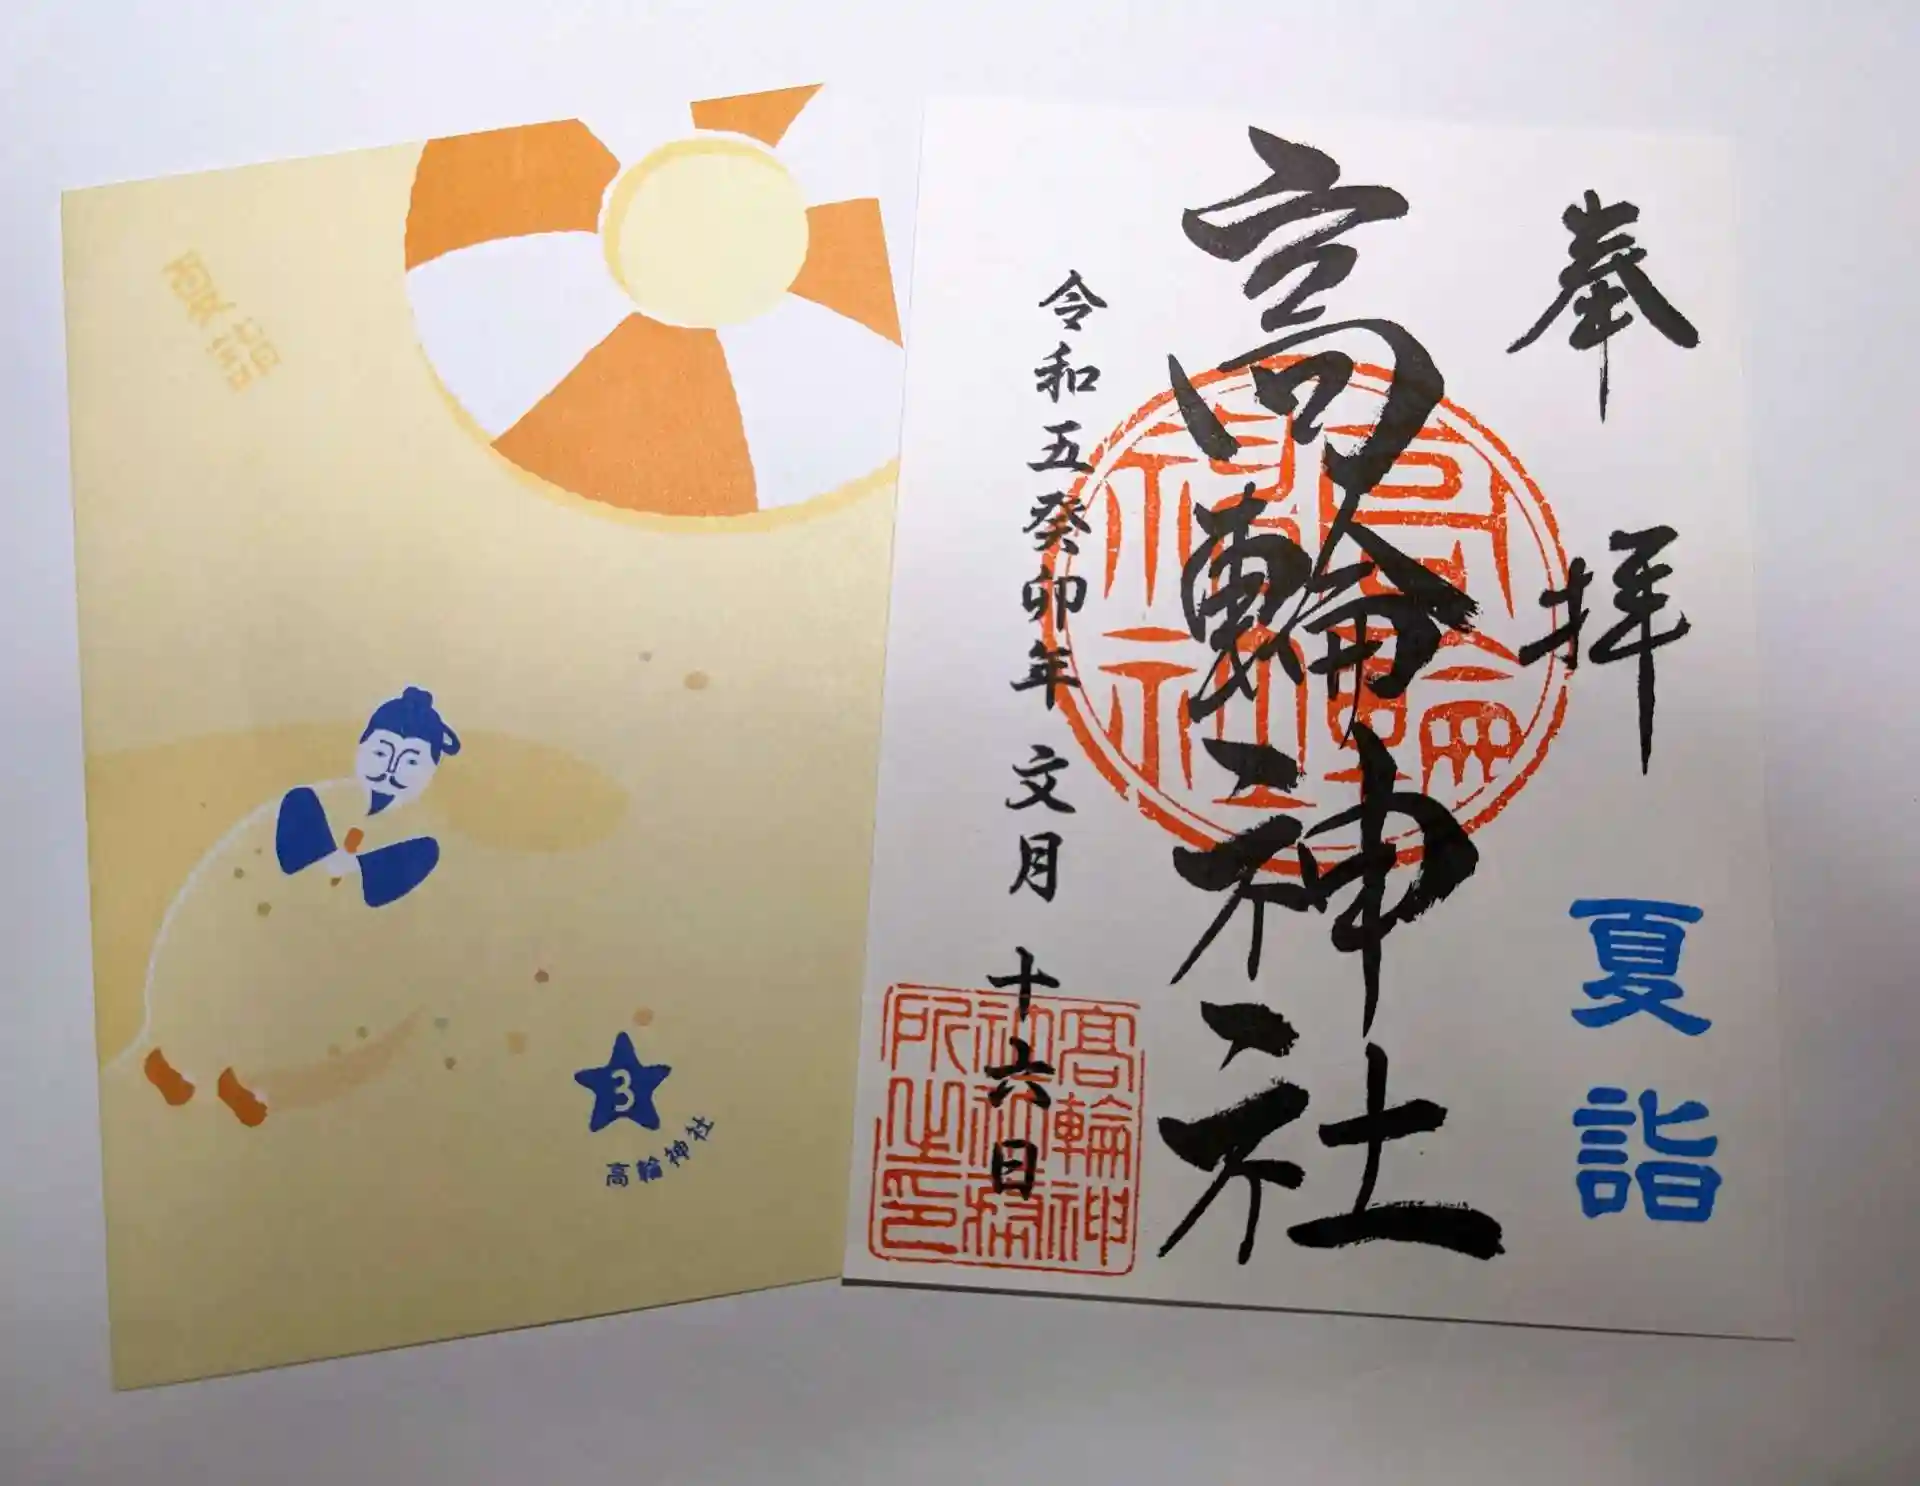 夏詣
3
高輪神社
奉拝
夏詣
高輪神社
高輪
神社
令和五癸卯年 文月 十六日
高輪神
社社務
所之印